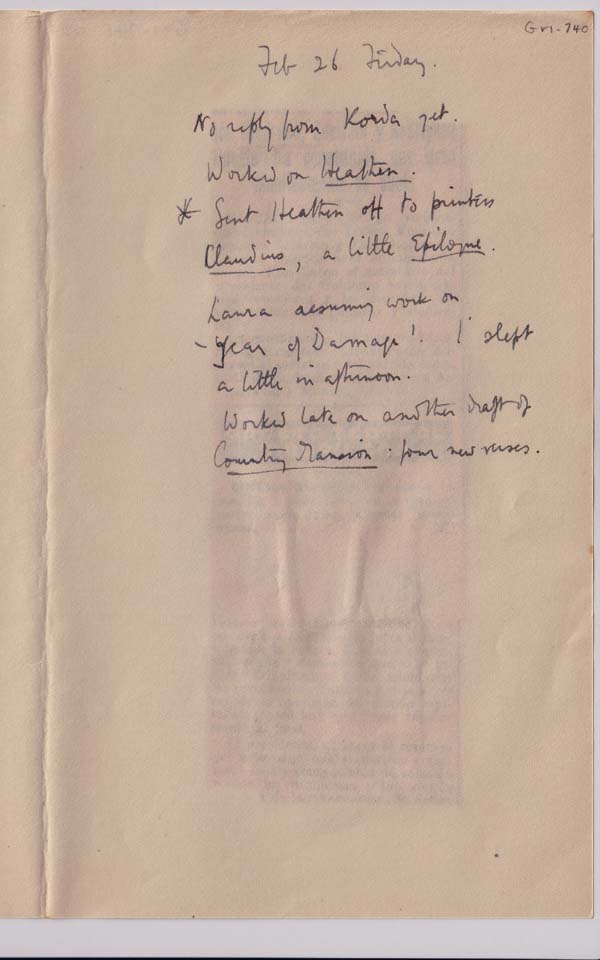 Feb 26 Friday.
No reply from Korda yet.
Worked on Heathen.
* Sent Heathen off to printers
Claudius, a little Epilogue.
Laura resuming work on
'Year of Damage'. I slept
a little in afternoon.
Worked late on another draft of
Country Mansion: four new verses.